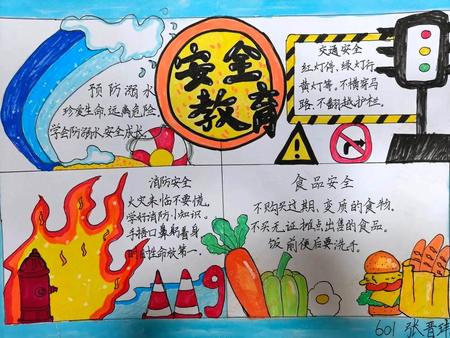 安全
教育
预防溺水
珍爱生命,远离危险,
学会防溺水,安全成长。
交通安全
红灯停、绿灯行,
黄灯等,不横穿马
路,不翻越护栏。
消防安全
火灾来临不要慌。
学好消防小知识。
手捂口鼻躬着身
性命放第一。
119
食品安全
不购买过期、变质的食物,
不买无证摊点出售的食品。
饭前便后要洗手。
601 张晋玮